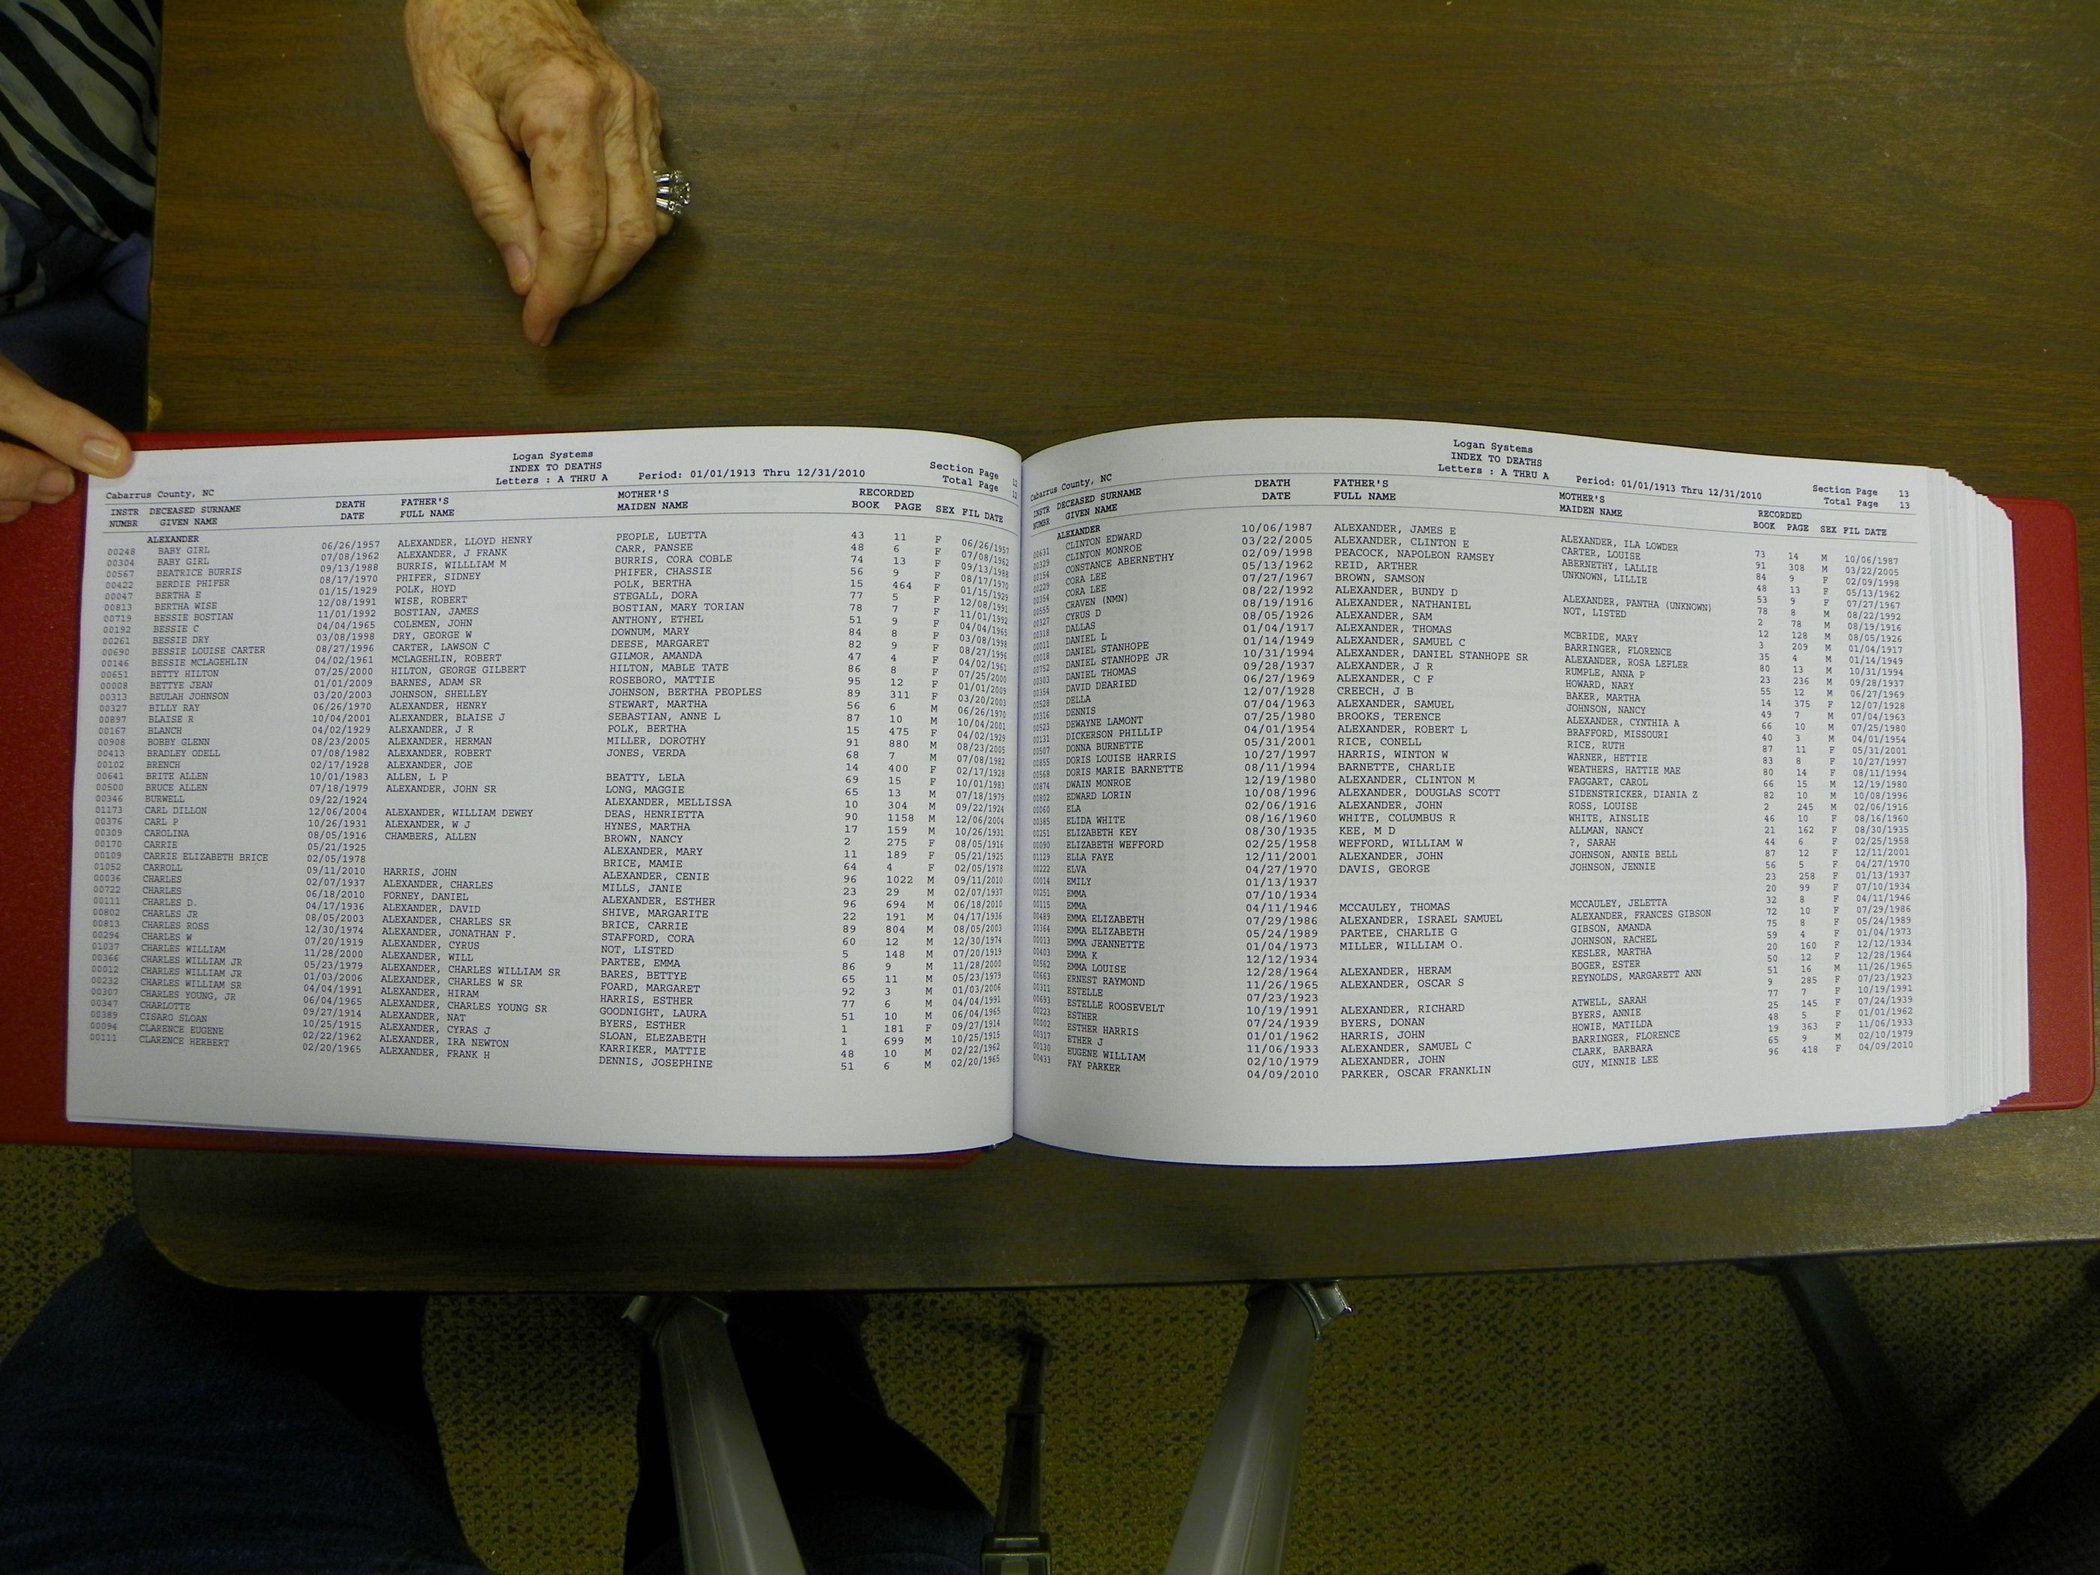 Logan Systems
INDEX TO DEATHS
Letters : A THRU A Period: 01/01/1913 Thru 12/31/2010 Section Page 12
Total Page 12
Cabarrus County, NC
INSTR NUMBR DECEASED SURNAME GIVEN NAME DEATH DATE FATHER'S FULL NAME MOTHER'S MAIDEN NAME RECORDED BOOK PAGE SEX FIL DATE
ALEXANDER
00248 BABY GIRL 06/26/1957 ALEXANDER, LLOYD HENRY PEOPLE, LUETTA 43 11 F 06/26/1957
00304 BABY GIRL 07/08/1962 ALEXANDER, J FRANK CARR, PANSEE 48 6 F 07/08/1962
00567 BEATRICE BURRIS 09/13/1988 BURRIS, WILLLIAM M BURRIS, CORA COBLE 74 13 F 09/13/1988
00422 BERDIE PHIFER 08/17/1970 PHIFER, SIDNEY PHIFER, CHASSIE 56 9 F 08/17/1970
00047 BERTHA E 01/15/1929 POLK, HOYD POLK, BERTHA 15 464 F 01/15/1929
00813 BERTHA WISE 12/08/1991 WISE, ROBERT STEGALL, DORA 77 5 F 12/08/1991
00719 BESSIE BOSTIAN 11/01/1992 BOSTIAN, JAMES BOSTIAN, MARY TORIAN 78 7 F 11/01/1992
00192 BESSIE C 04/04/1965 COLEMEN, JOHN ANTHONY, ETHEL 51 9 F 04/04/1965
00261 BESSIE DRY 03/08/1998 DRY, GEORGE W DOWNUM, MARY 84 8 F 03/08/1998
00690 BESSIE LOUISE CARTER 08/27/1996 CARTER, LAWSON C DEESE, MARGARET 82 9 F 08/27/1996
00146 BESSIE MCLAGEHLIN 04/02/1961 MCLAGEHLIN, ROBERT GILMOR, AMANDA 47 4 F 04/02/1961
00651 BETTY HILTON 07/25/2000 HILTON, GEORGE GILBERT HILTON, MABLE TATE 86 8 F 07/25/2000
00008 BETTYE JEAN 01/01/2009 BARNES, ADAM SR ROSEBORO, MATTIE 95 12 F 01/01/2009
00313 BEULAH JOHNSON 03/20/2003 JOHNSON, SHELLEY JOHNSON, BERTHA PEOPLES 89 311 F 03/20/2003
00327 BILLY RAY 06/26/1970 ALEXANDER, HENRY STEWART, MARTHA 56 6 M 06/26/1970
00897 BLAISE R 10/04/2001 ALEXANDER, BLAISE J SEBASTIAN, ANNE L 87 10 M 10/04/2001
00167 BLANCH 04/02/1929 ALEXANDER, J R POLK, BERTHA 15 475 F 04/02/1929
00908 BOBBY GLENN 08/23/2005 ALEXANDER, HERMAN MILLER, DOROTHY 91 880 M 08/23/2005
00413 BRADLEY ODELL 07/08/1982 ALEXANDER, ROBERT JONES, VERDA 68 7 M 07/08/1982
00102 BRENCH 02/17/1928 ALEXANDER, JOE 14 400 F 02/17/1928
00641 BRITE ALLEN 10/01/1983 ALLEN, L P BEATTY, LELA 69 15 F 10/01/1983
00500 BRUCE ALLEN 07/18/1979 ALEXANDER, JOHN SR LONG, MAGGIE 65 13 M 07/18/1979
00346 BURWELL 09/22/1924 ALEXANDER, MELLISSA 10 304 M 09/22/1924
01173 CARL DILLON 12/06/2004 ALEXANDER, WILLIAM DEWEY DEAS, HENRIETTA 90 1158 M 12/06/2004
00376 CARL P 10/26/1931 ALEXANDER, W J HYNES, MARTHA 17 159 M 10/26/1931
00309 CAROLINA 08/05/1916 CHAMBERS, ALLEN BROWN, NANCY 2 275 F 08/05/1916
00170 CARRIE 05/21/1925 ALEXANDER, MARY 11 189 F 05/21/1925
00109 CARRIE ELIZABETH BRICE 02/05/1978 BRICE, MAMIE 64 4 F 02/05/1978
01052 CARROLL 09/11/2010 HARRIS, JOHN ALEXANDER, CENIE 96 1022 M 09/11/2010
00036 CHARLES 02/07/1937 ALEXANDER, CHARLES MILLS, JANIE 23 29 M 02/07/1937
00722 CHARLES 06/18/2010 FORNEY, DANIEL ALEXANDER, ESTHER 96 694 M 06/18/2010
00111 CHARLES D. 04/17/1936 ALEXANDER, DAVID SHIVE, MARGARITE 22 191 M 04/17/1936
00802 CHARLES JR 08/05/2003 ALEXANDER, CHARLES SR BRICE, CARRIE 89 804 M 08/05/2003
00813 CHARLES ROSS 12/30/1974 ALEXANDER, JONATHAN F. STAFFORD, CORA 60 12 M 12/30/1974
00294 CHARLES W 07/20/1919 ALEXANDER, CYRUS NOT, LISTED 5 148 M 07/20/1919
01037 CHARLES WILLIAM 11/28/2000 ALEXANDER, WILL PARTEE, EMMA 86 9 M 11/28/2000
00366 CHARLES WILLIAM JR 05/23/1979 ALEXANDER, CHARLES WILLIAM SR BARES, BETTYE 65 11 M 05/23/1979
00012 CHARLES WILLIAM JR 01/03/2006 ALEXANDER, CHARLES W SR FOARD, MARGARET 92 3 M 01/03/2006
00232 CHARLES WILLIAM SR 04/04/1991 ALEXANDER, HIRAM HARRIS, ESTHER 77 6 M 04/04/1991
00307 CHARLES YOUNG, JR 06/04/1965 ALEXANDER, CHARLES YOUNG SR GOODNIGHT, LAURA 51 10 M 06/04/1965
00347 CHARLOTTE 09/27/1914 ALEXANDER, NAT BYERS, ESTHER 1 181 F 09/27/1914
00389 CISARO SLOAN 10/25/1915 ALEXANDER, CYRAS J SLOAN, ELEZABETH 1 699 M 10/25/1915
00094 CLARENCE EUGENE 02/22/1962 ALEXANDER, IRA NEWTON KARRIKER, MATTIE 48 10 M 02/22/1962
00111 CLARENCE HERBERT 02/20/1965 ALEXANDER, FRANK H DENNIS, JOSEPHINE 51 6 M 02/20/1965
Logan Systems
INDEX TO DEATHS
Letters : A THRU A Period: 01/01/1913 Thru 12/31/2010 Section Page 13
Total Page 13
Cabarrus County, NC
INSTR NUMBR DECEASED SURNAME GIVEN NAME DEATH DATE FATHER'S FULL NAME MOTHER'S MAIDEN NAME RECORDED BOOK PAGE SEX FIL DATE
ALEXANDER
00631 CLINTON EDWARD 10/06/1987 ALEXANDER, JAMES E ALEXANDER, ILA LOWDER 73 14 M 10/06/1987
00329 CLINTON MONROE 03/22/2005 ALEXANDER, CLINTON E CARTER, LOUISE 91 308 M 03/22/2005
00156 CONSTANCE ABERNETHY 02/09/1998 PEACOCK, NAPOLEON RAMSEY ABERNETHY, LALLIE 84 9 F 02/09/1998
00229 CORA LEE 05/13/1962 REID, ARTHER UNKNOWN, LILLIE 48 13 F 05/13/1962
00354 CORA LEE 07/27/1967 BROWN, SAMSON 53 9 F 07/27/1967
00555 CRAVEN (NMN) 08/22/1992 ALEXANDER, BUNDY D ALEXANDER, PANTHA (UNKNOWN) 78 8 M 08/22/1992
00327 CYRUS D 08/19/1916 ALEXANDER, NATHANIEL NOT, LISTED 2 78 M 08/19/1916
00318 DALLAS 08/05/1926 ALEXANDER, SAM 12 128 M 08/05/1926
00011 DANIEL L 01/04/1917 ALEXANDER, THOMAS MCBRIDE, MARY 3 209 M 01/04/1917
00018 DANIEL STANHOPE 01/14/1949 ALEXANDER, SAMUEL C BARRINGER, FLORENCE 35 4 M 01/14/1949
00752 DANIEL STANHOPE JR 10/31/1994 ALEXANDER, DANIEL STANHOPE SR ALEXANDER, ROSA LEFLER 80 13 M 10/31/1994
00303 DANIEL THOMAS 09/28/1937 ALEXANDER, J R RUMPLE, ANNA P 23 236 M 09/28/1937
00354 DAVID DEARIED 06/27/1969 ALEXANDER, C F HOWARD, NARY 55 12 M 06/27/1969
00528 DELLA 12/07/1928 CREECH, J B BAKER, MARTHA 14 375 F 12/07/1928
00316 DENNIS 07/04/1963 ALEXANDER, SAMUEL JOHNSON, NANCY 49 7 M 07/04/1963
00523 DEWAYNE LAMONT 07/25/1980 BROOKS, TERENCE ALEXANDER, CYNTHIA A 66 10 M 07/25/1980
00131 DICKERSON PHILLIP 04/01/1954 ALEXANDER, ROBERT L BRAFFORD, MISSOURI 40 3 M 04/01/1954
00507 DONNA BURNETTE 05/31/2001 RICE, CONELL RICE, RUTH 87 11 F 05/31/2001
00855 DORIS LOUISE HARRIS 10/27/1997 HARRIS, WINTON W WARNER, HETTIE 83 8 F 10/27/1997
00568 DORIS MARIE BARNETTE 08/11/1994 BARNETTE, CHARLIE WEATHERS, HATTIE MAE 80 14 F 08/11/1994
00874 DWAIN MONROE 12/19/1980 ALEXANDER, CLINTON M FAGGART, CAROL 66 15 M 12/19/1980
00802 EDWARD LORIN 10/08/1996 ALEXANDER, DOUGLAS SCOTT SIDENSTRICKER, DIANIA Z 82 10 M 10/08/1996
00060 ELA 02/06/1916 ALEXANDER, JOHN ROSS, LOUISE 2 245 M 02/06/1916
00385 ELIDA WHITE 08/16/1960 WHITE, COLUMBUS R WHITE, AINSLIE 46 10 F 08/16/1960
00251 ELIZABETH KEY 08/30/1935 KEE, M D ALLMAN, NANCY 21 162 F 08/30/1935
00090 ELIZABETH WEFFORD 02/25/1958 WEFFORD, WILLIAM W ?, SARAH 44 6 F 02/25/1958
01129 ELLA FAYE 12/11/2001 ALEXANDER, JOHN JOHNSON, ANNIE BELL 87 12 F 12/11/2001
00222 ELVA 04/27/1970 DAVIS, GEORGE JOHNSON, JENNIE 56 5 F 04/27/1970
00014 EMILY 01/13/1937 23 258 F 01/13/1937
00251 EMMA 07/10/1934 20 99 F 07/10/1934
00115 EMMA 04/11/1946 MCCAULEY, THOMAS MCCAULEY, JELETTA 32 8 F 04/11/1946
00489 EMMA ELIZABETH 07/29/1986 ALEXANDER, ISRAEL SAMUEL ALEXANDER, FRANCES GIBSON 72 10 F 07/29/1986
00364 EMMA ELIZABETH 05/24/1989 PARTEE, CHARLIE G GIBSON, AMANDA 75 8 F 05/24/1989
00013 EMMA JEANNETTE 01/04/1973 MILLER, WILLIAM O. JOHNSON, RACHEL 59 4 F 01/04/1973
00403 EMMA K 12/12/1934 KESLER, MARTHA 20 160 F 12/12/1934
00562 EMMA LOUISE 12/28/1964 ALEXANDER, HERAM BOGER, ESTER 50 12 F 12/28/1964
00663 ERNEST RAYMOND 11/26/1965 ALEXANDER, OSCAR S REYNOLDS, MARGARETT ANN 51 16 M 11/26/1965
00311 ESTELLE 07/23/1923 9 285 F 07/23/1923
00693 ESTELLE ROOSEVELT 10/19/1991 ALEXANDER, RICHARD ATWELL, SARAH 77 7 F 10/19/1991
00223 ESTHER 07/24/1939 BYERS, DONAN BYERS, ANNIE 25 145 F 07/24/1939
00002 ESTHER HARRIS 01/01/1962 HARRIS, JOHN HOWIE, MATILDA 48 5 F 01/01/1962
00317 ETHER J 11/06/1933 ALEXANDER, SAMUEL C BARRINGER, FLORENCE 19 363 F 11/06/1933
00130 EUGENE WILLIAM 02/10/1979 ALEXANDER, JOHN CLARK, BARBARA 65 9 M 02/10/1979
00433 FAY PARKER 04/09/2010 PARKER, OSCAR FRANKLIN GUY, MINNIE LEE 96 418 F 04/09/2010